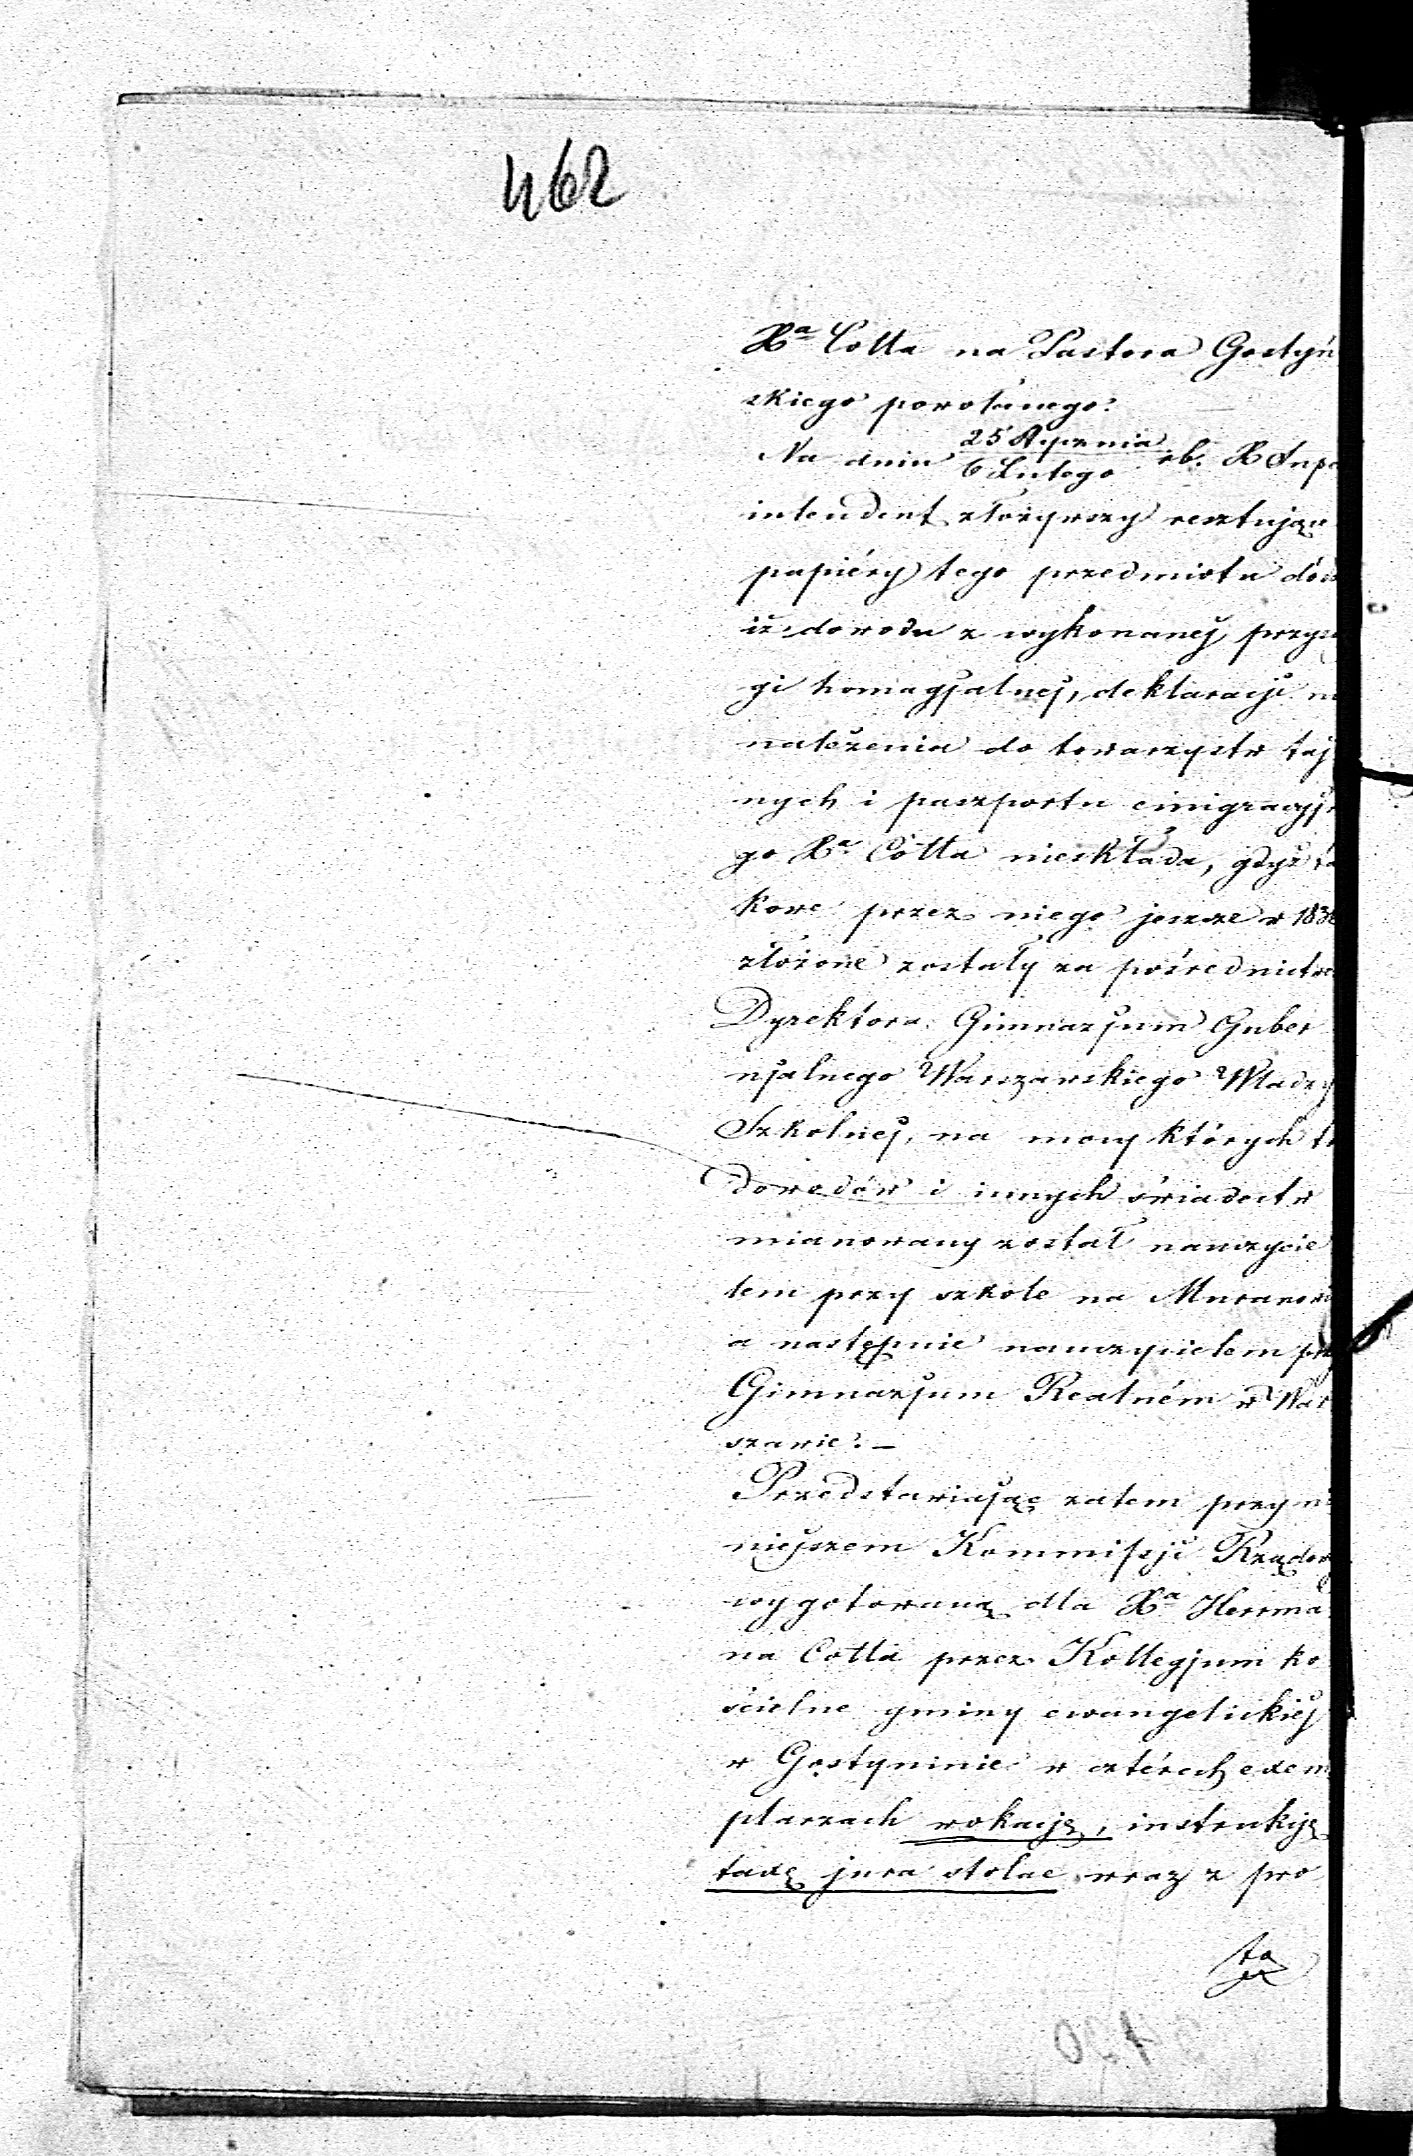 462
Xa Cotta na Pastora Gostyń
skiego powołanego.
Na dniu 25 Stycznia / 6 Lutego rb. X Supe
intendent złożywszy resztujące
papiéry tego przedmiotu
iż dowodu z wykonanéj przysi
gi homagjalnéj, deklaracji ni
należenia do towarzystw taj
nych i paszportu emigracyj
go Xa Cotta nieskłada, gdyż ta
kowe przez niego jeszcze w 1838
złożone zostały za pośrednictw
Dyrektora Gimnazjum Guber
njalnego Warszawskiego Władzy
Szkolnéj, na mocy których
dowodów i innych świadectw
mianowany został nauczycie
lem przy szkole na Muranowi
a następnie nauczycielem przy
Gimnazjum Realném w War
szawie. –
Przedstawiając zatem przy ni
niejszem Kommissji Rządow
wygotowaną dla Xa Herrma
na Cotta przez Kollegjum ko
ścielne gminy ewangelickiéj
w Gostyninie w cztérech exem
plarzach wokacją, instrukcję
taxę jura stolae wraz z pro
to